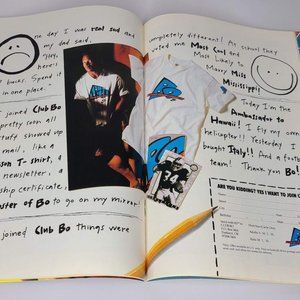 one day I was real sad and
my dad said,
"Hey,
here's
bucks. Spend it
in one place."
joined Club Bo
pretty soon all
stuff showed up
mail, like a
son T-shirt, a
newsletter, a
ship certificate,
oster of Bo to go on my mirror!
joined Club Bo things were
completely different! At school they
voted me Most Cool and
Most Likely to
Marry Miss
Mississippi!!
Today I'm the
Ambassador to
Hawaii! I fly my own
helicopter!! Yesterday I
bought Italy!! And a foot
team! Thank you Bo!
34
ARE YOU KIDDING? YES I WANT TO JOIN C